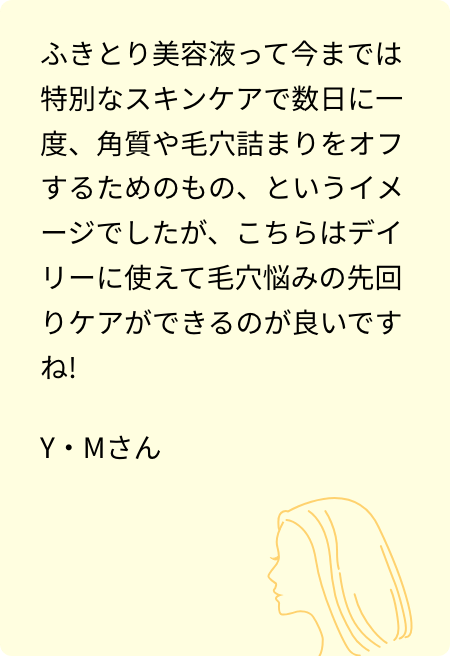 ふきとり美容液って今までは
特別なスキンケアで数日に一
度、角質や毛穴詰まりをオフ
するためのもの、というイメ
ージでしたが、こちらはデイ
リーに使えて毛穴悩みの先回
りケアができるのが良いです
ね!
Y・Mさん